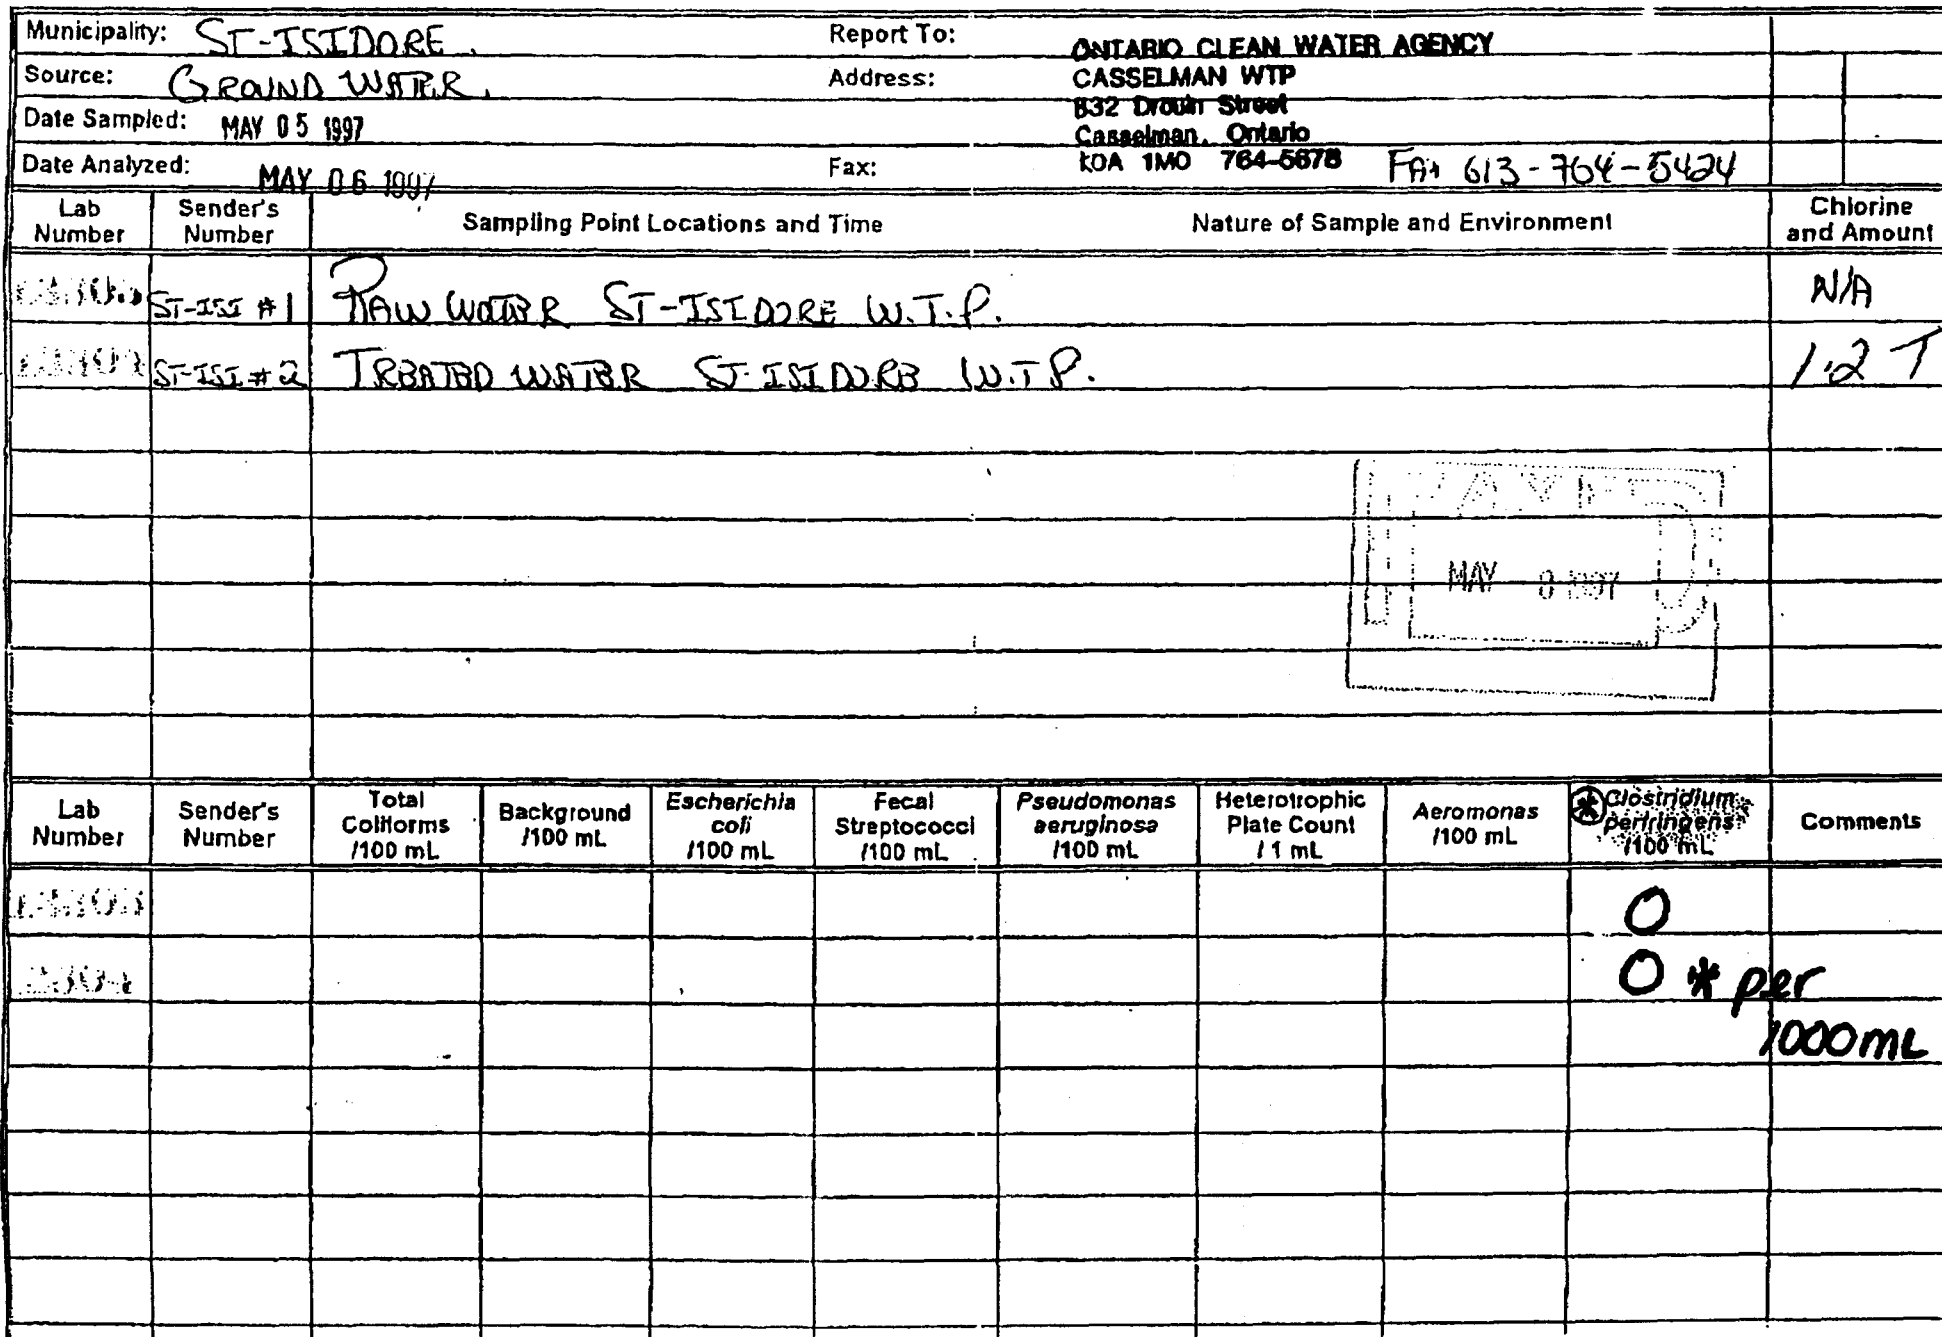 Municipality: ST-ISIDORE. Report To: ONTARIO CLEAN WATER AGENCY
Source: GROUND WATER. Address: CASSELMAN WTP
832 Drouin Street
Date Sampled: MAY 05 1997 Casselman, Ontario
Date Analyzed: MAY 06 1997 Fax: K0A 1M0 764-5678 FAX 613-764-5424
Lab Number Sender's Number Sampling Point Locations and Time Nature of Sample and Environment Chlorine and Amount
ST-ISI #1 RAW WATER ST-ISIDORE W.T.P. N/A
ST-ISI #2 TREATED WATER ST-ISIDORE W.T.P. 1.2 T
MAY 1997
Lab Number Sender's Number Total Coliforms /100 mL Background /100 mL Escherichia coli /100 mL Fecal Streptococci /100 mL Pseudomonas aeruginosa /100 mL Heterotrophic Plate Count / 1 mL Aeromonas /100 mL * Clostridium perfringens /100 mL Comments
0
0 * per
1000mL